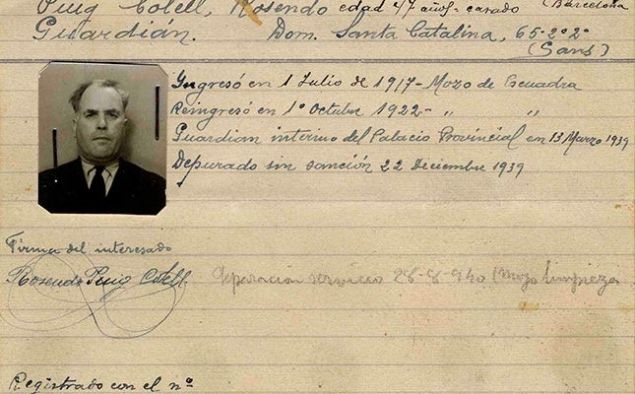 Puig Cotell, Rosendo edad 47 años - casado (Barcelona
Guardián. Dom. Santa Catalina, 65-2º 2ª
(Sans)
Ingresó en 1 Julio de 1917 - Mozo de Escuadra
Reingresó en 1º Octubre 1922 - " "
Guardian interino del Palacio Provincial en 13 Marzo 1939
Depurado sin sanción 22 Diciembre 1939
Firma del interesado
Rosendo Puig Cotell. servicio 28-8-940 (Mozo limpieza
Registrado con el nº